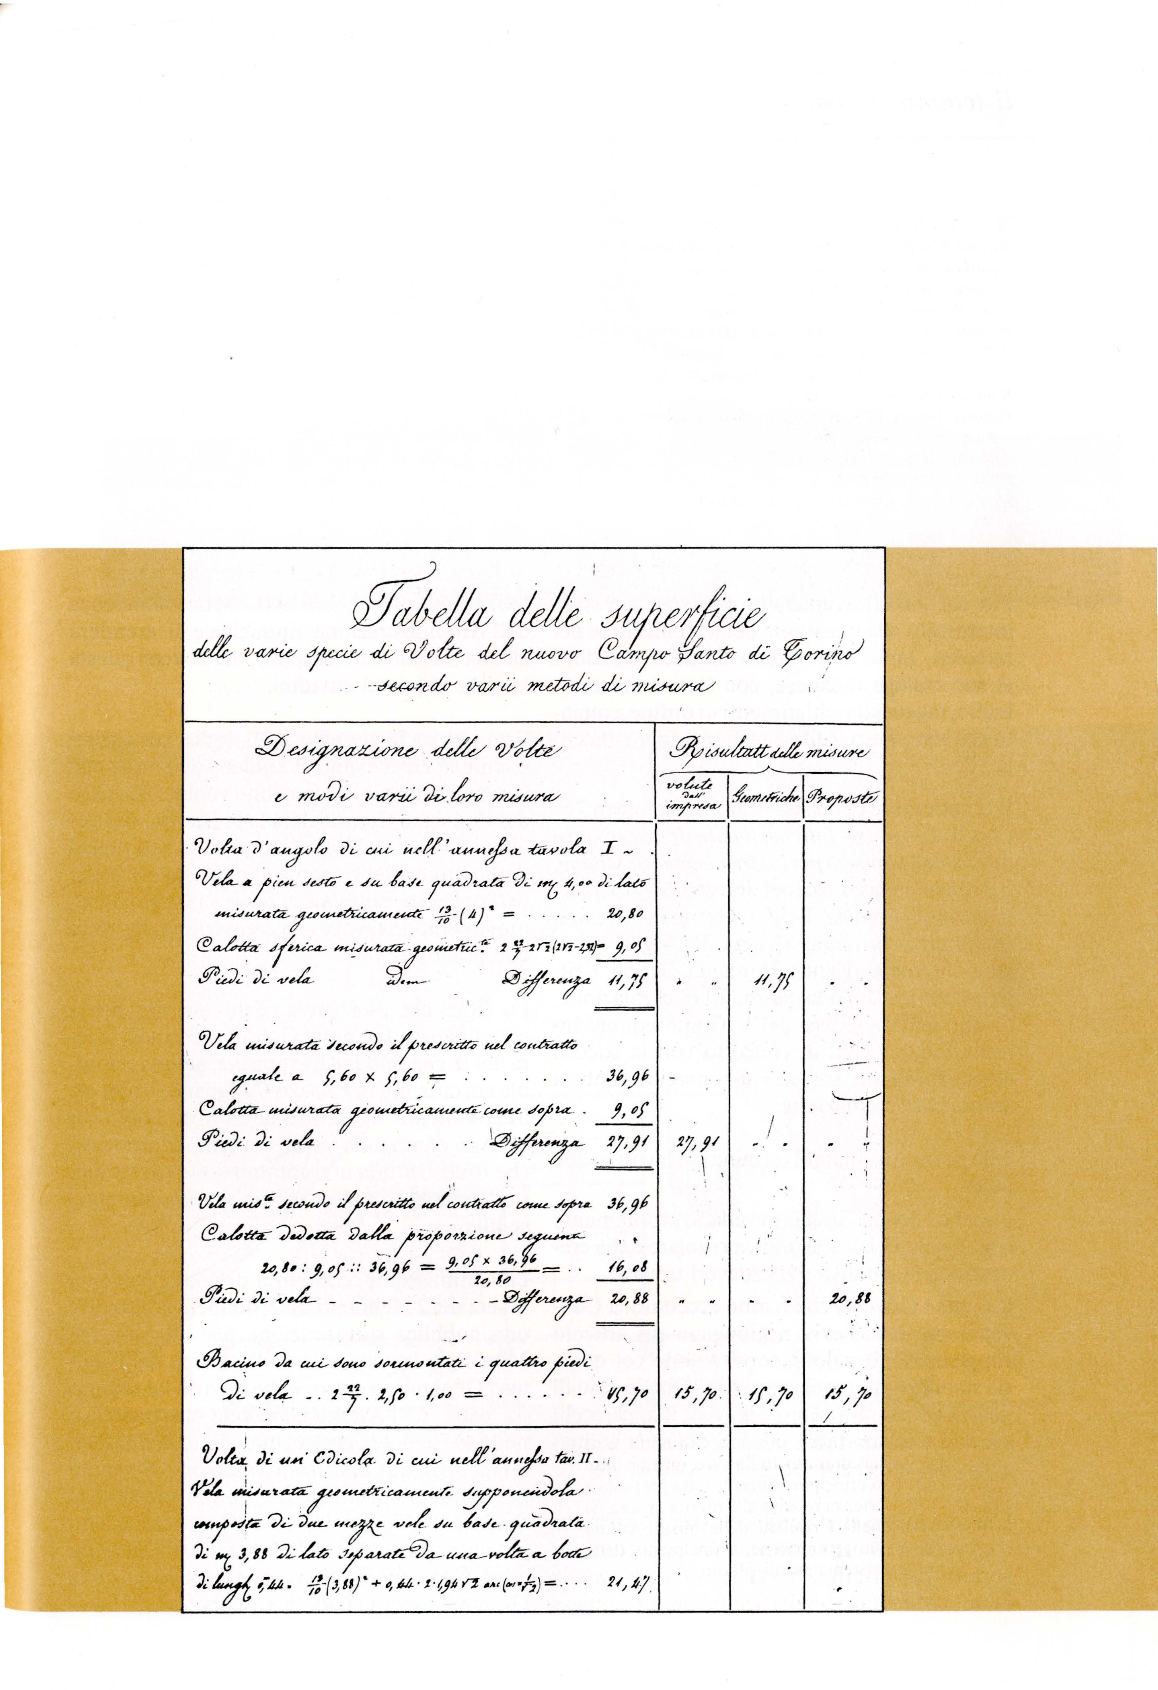 Tabella delle superficie
delle varie specie di Volte del nuovo Campo Santo di Torino
secondo varii metodi di misura
Designazione delle Volte
e modi varii di loro misura
Risultati delle misure
volute dall' impresa
Geometriche
Proposte
Volta d'angolo di cui nell'annessa tavola I ~
Vela a pien sesto e su base quadrata di m 4,00 di lato
misurata geometricamente 13/10 (4)² = . . . . . 20,80
Calotta sferica misurata geometric.te 2 22/7 2√2 (2√2-2,32) = 9,05
Piedi di vela idem Differenza 11,75 " " 11,75 " "
Vela misurata secondo il prescritto nel contratto
eguale a 5,60 × 5,60 = . . . . . . . 36,96
Calotta misurata geometricamente come sopra . 9,05
Piedi di vela . . . . . . Differenza 27,91 27,91 " " " "
Vela mis.ta secondo il prescritto nel contratto come sopra 36,96
Calotta dedotta dalla proporzione seguente
20,80 : 9,05 :: 36,96 = 9,05 × 36,96 / 20,80 = . . 16,08
Piedi di vela - - - - - - - - Differenza 20,88 " " " " 20,88
Bacino da cui sono sormontati i quattro piedi
di vela .. 2 22/7 . 2,50 . 1,00 = . . . . . . 15,70 15,70 15,70 15,70
Volta di un' Edicola di cui nell'annessa tav. II -
Vela misurata geometricamente supponendola
composta di due mezze vele su base quadrata
di m 3,88 di lato separate da una volta a botte
di lungh. 0,44. 13/10 (3,88)² + 0,44 . 2 . 1,94 √2 arc = . . . 21,47